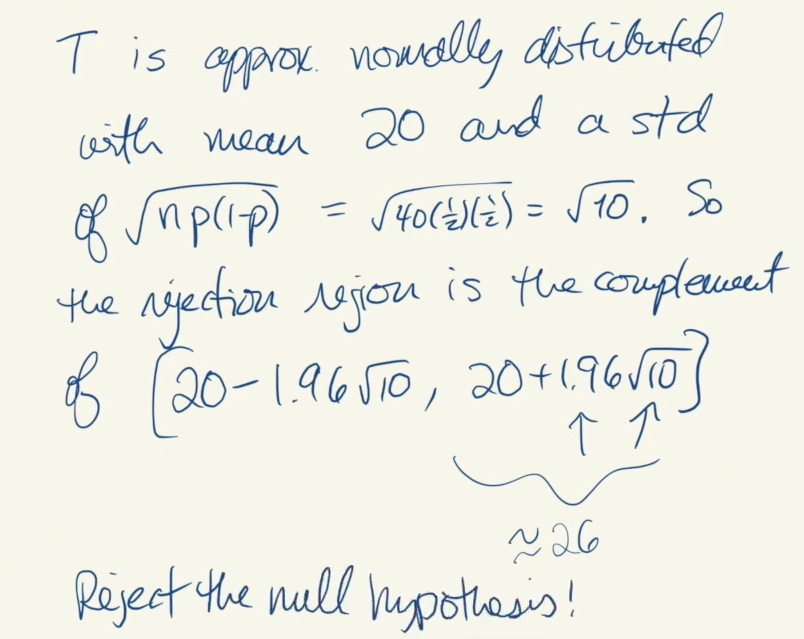 T is approx. normally distributed
with mean 20 and a std
of √np(1-p) = √40(½)(½) = √10. So
the rejection region is the complement
of [20-1.96√10, 20+1.96√10]
↑ ↑
≈26
Reject the null hypothesis!